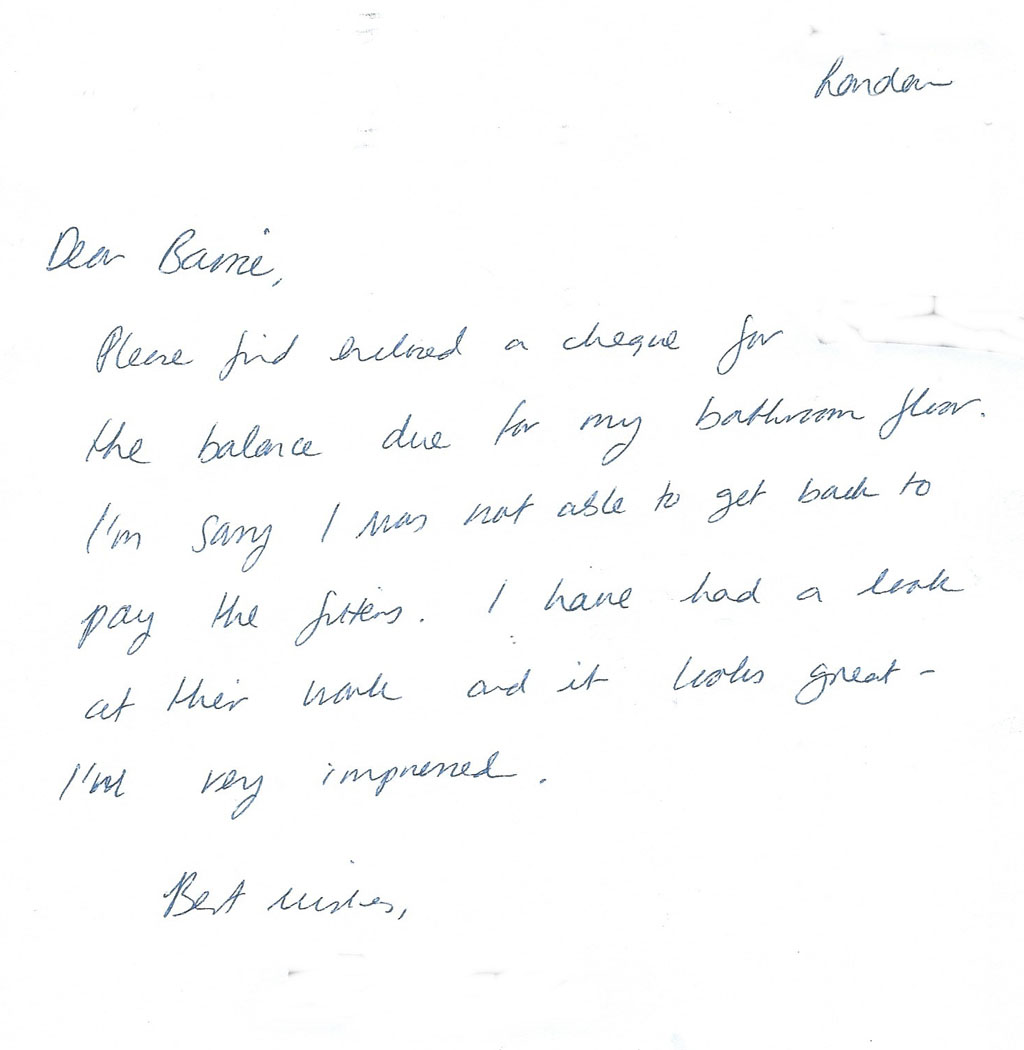 London
Dear Barrie,
Please find enclosed a cheque for
the balance due for my bathroom floor.
I'm sorry I was not able to get back to
pay the fitters. I have had a look
at their work and it looks great -
I'm very impressed.
Best wishes,